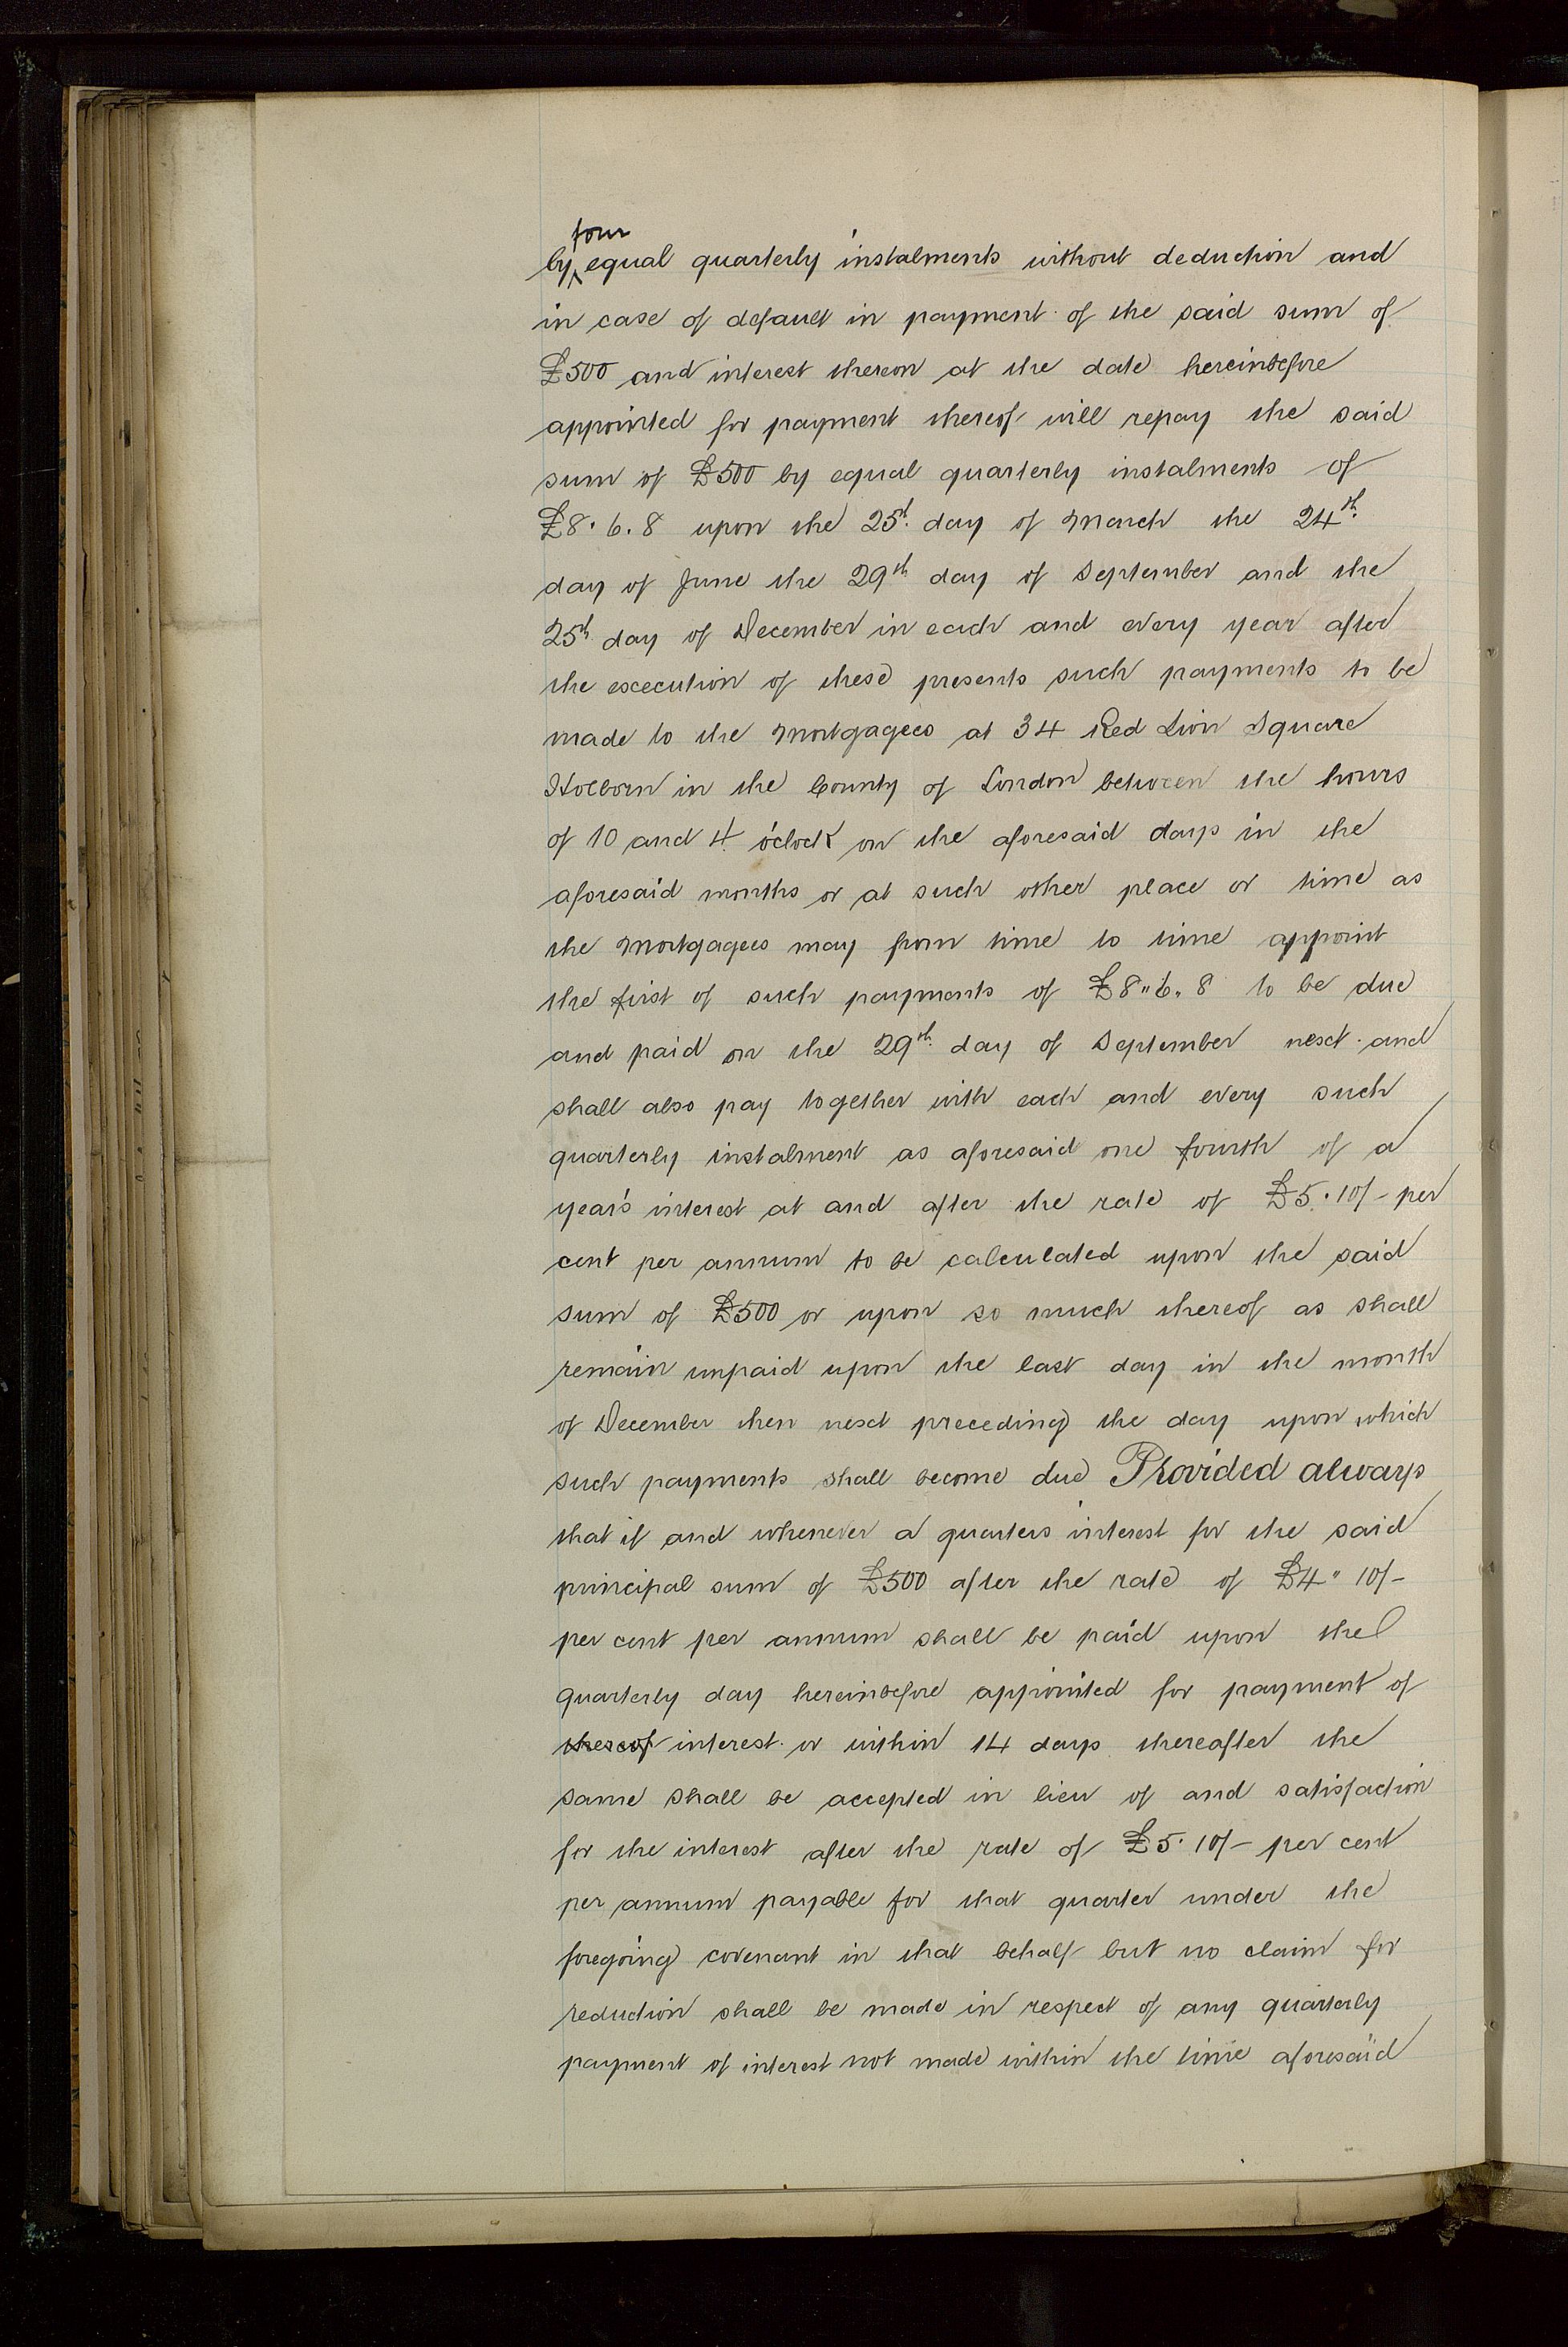 by four equal quarterly instalments without deduction and
in case of default in payment of the said sum of
£500 and interest thereon at the date hereinbefore
appointed for payment thereof will repay the said
sum of £500 by equal quarterly instalments of
£8. 6. 8 upon the 25th day of March the 24th
day of June the 29th day of September and the
25th day of December in each and every year after
the execution of these presents such payments to be
made to the Mortgagees at 34 Red Lion Square
Holborn in the County of London between the hours
of 10 and 4 o'clock on the aforesaid days in the
aforesaid months or at such other place or time as
the Mortgagees may from time to time appoint
the first of such payments of £8" 6" 8 to be due
and paid on the 29th day of September next and
shall also pay together with each and every such
quarterly instalment as aforesaid one fourth of a
year's interest at and after the rate of £5. 10/- per
cent per annum to be calculated upon the said
sum of £500 or upon so much thereof as shall
remain unpaid upon the last day in the month
of December then next preceding the day upon which
such payments shall become due Provided always
that if and whenever a quarters interest for the said
principal sum of £500 after the rate of £4" 10/-
per cent per annum shall be paid upon the
quarterly day hereinbefore appointed for payment of
thereof interest or within 14 days thereafter the
same shall be accepted in lieu of and satisfaction
for the interest after the rate of £5. 10/- per cent
per annum payable for that quarter under the
foregoing covenant in that behalf but no claim for
reduction shall be made in respect of any quarterly
payment of interest not made within the time aforesaid